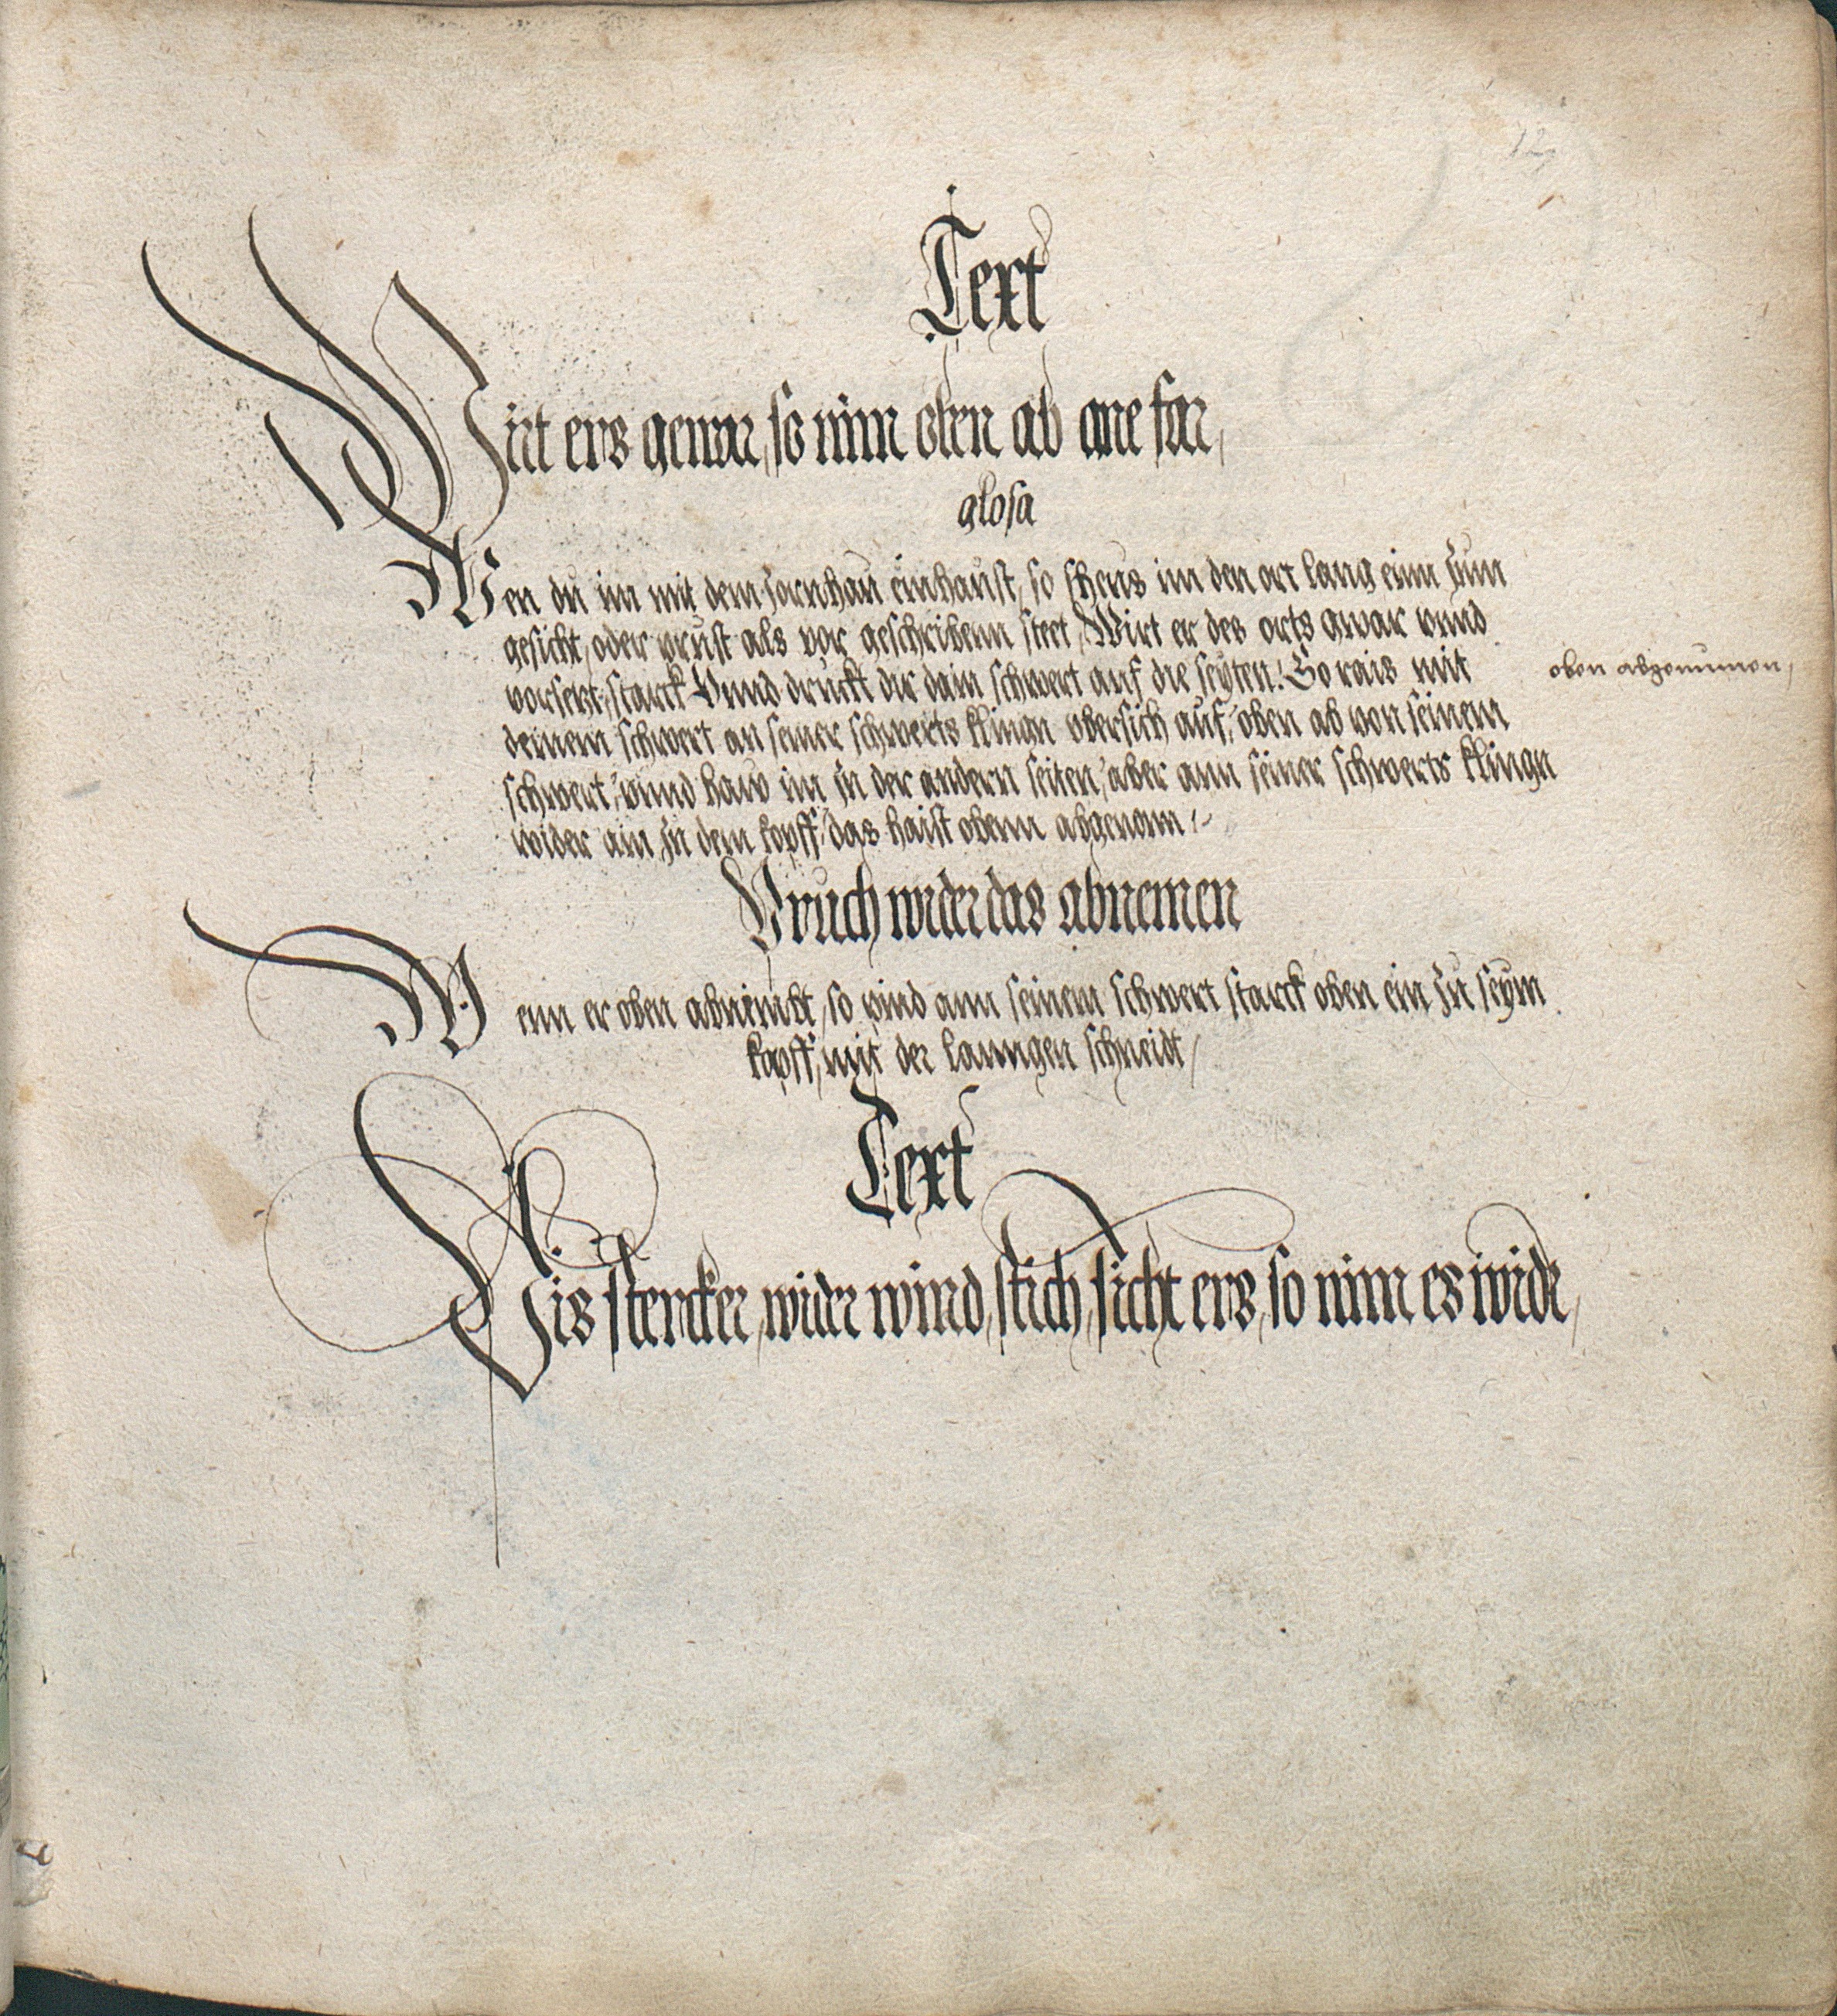 12
Text
Wirt ers gewar, so nim oben ab ane far,
glosa
Wen du im mit dem zornhau einhaust, so scheus im den ort lang einn zum
gesicht, oder prust als vor geschribenn steet, Wirt er des orts gwar vnnd
vorsetzt, starck Vnnd druckt dir dain schwert auf die seyten. So rais mit
oben abgenumen,
deinem schwert an seiner schwerts klingn vbersich auf, oben ab von seinem
schwert, vnnd haw im zu der andern seiten, aber ann seiner schwerts klingn
wider ain zu dem kopff, das haist obenn abgenom
Pruch wider das abnemen
Wenn er oben abnimbt, so wind ann seinem schwert starck oben ein zu seym
kopff, mit der lanngen schneidt,
Text
Pis stercker, wider wind, stich, sicht ers, so nim es wider,